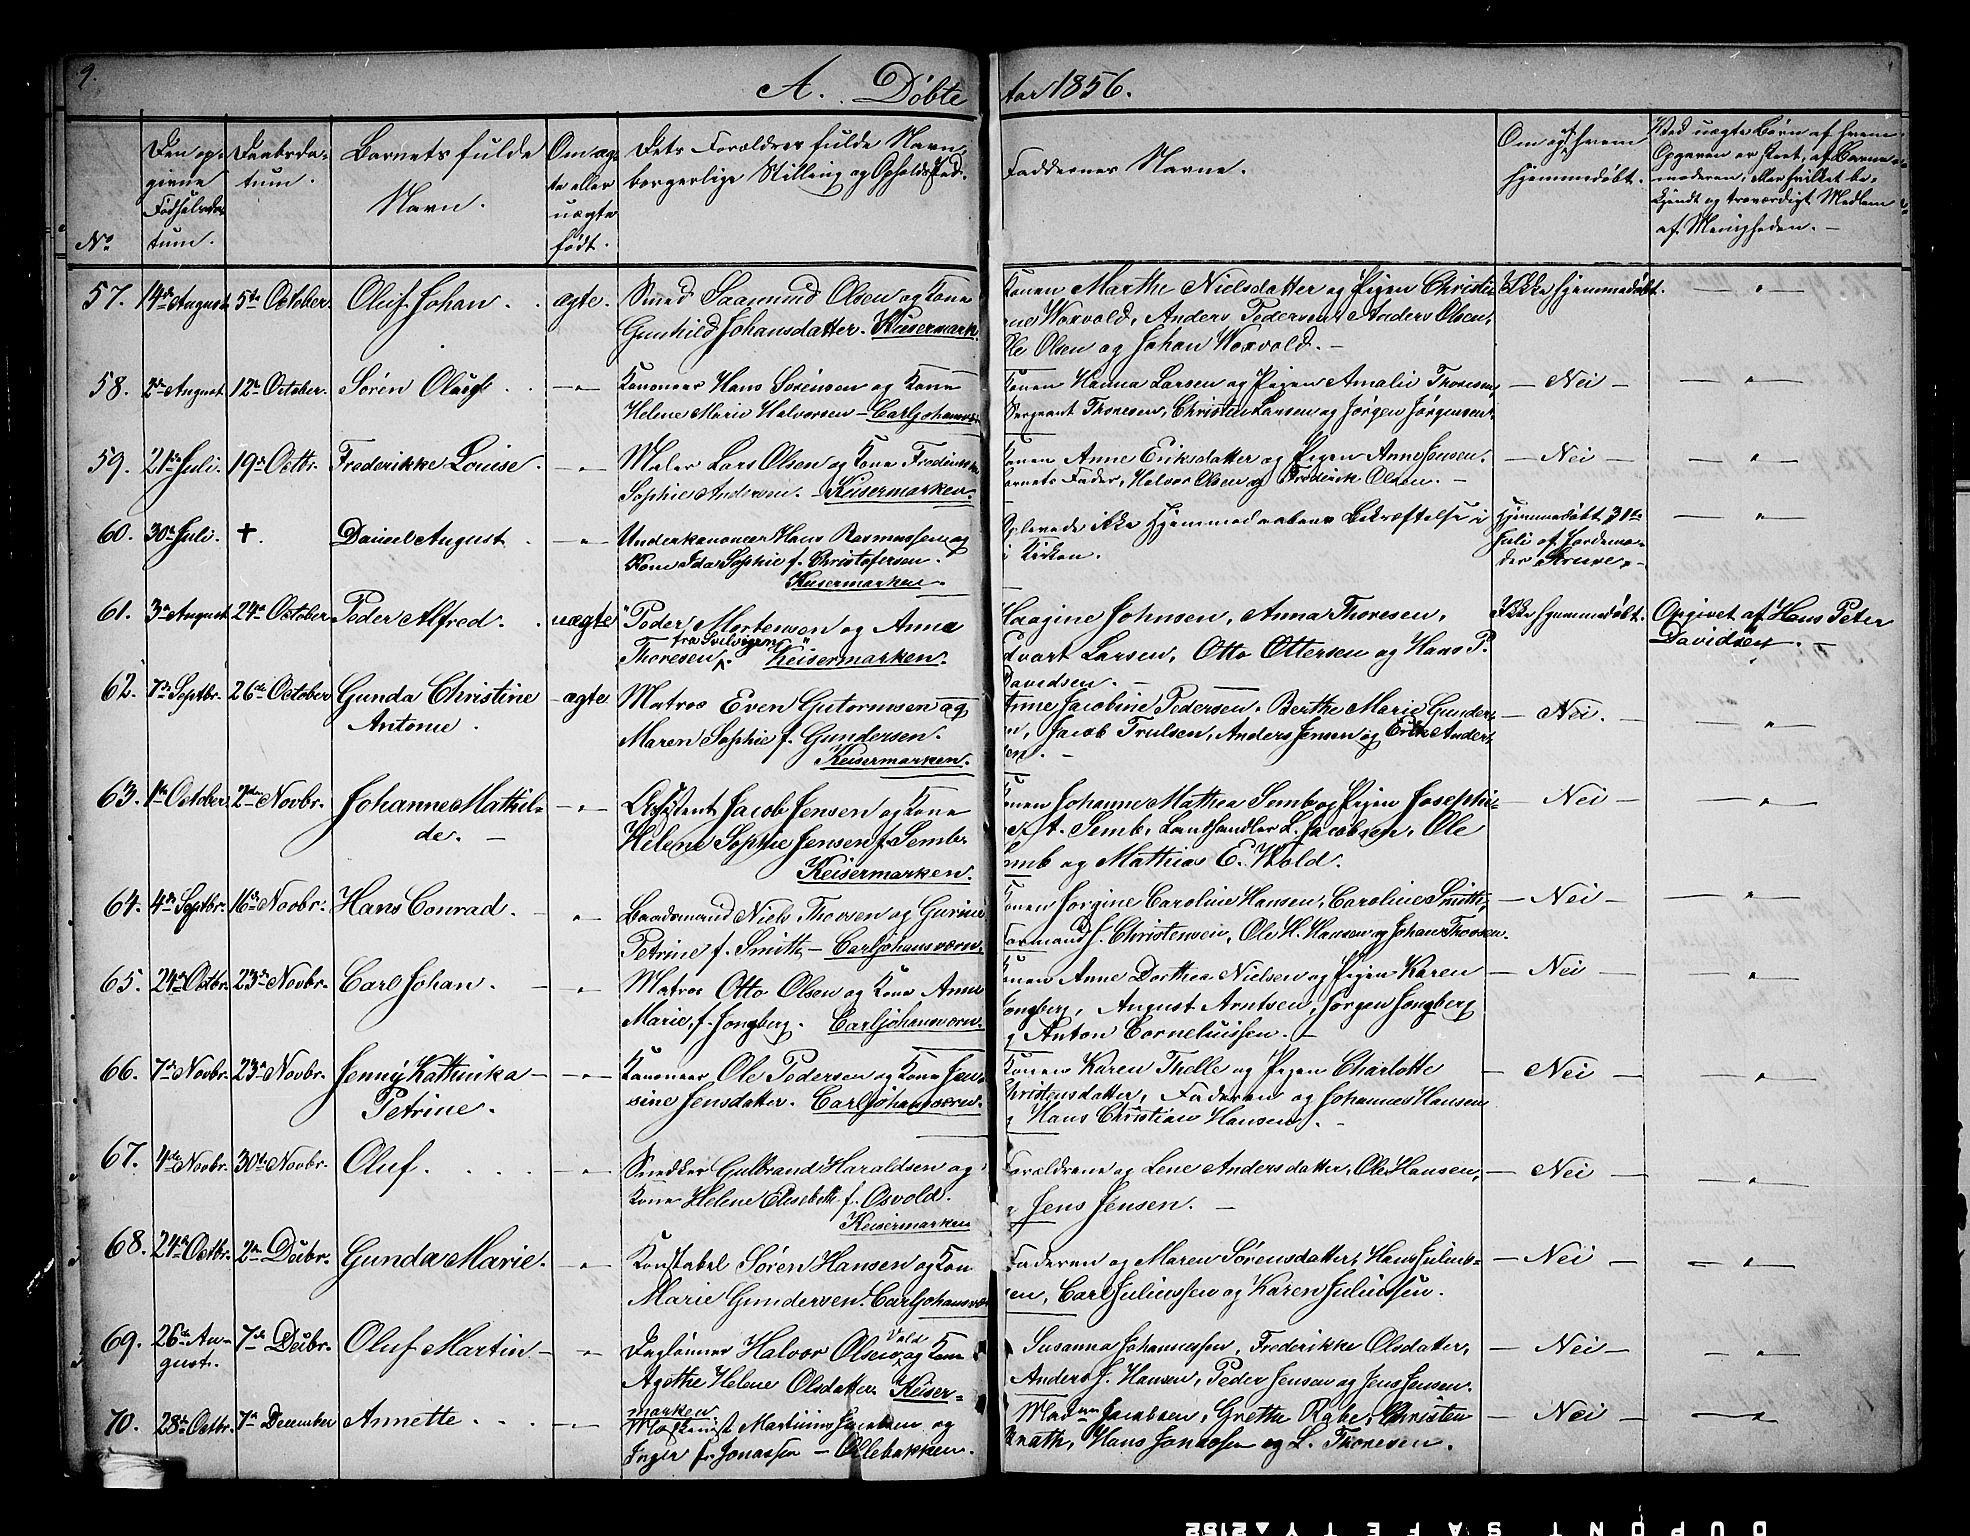 9.
A. Døbte Aar 1856.
No
Den op-
givne
Fødselsda-
tum.
Daabsda-
tum.
Barnets fulde
Navn.
Om æg-
te eller
uægte
født.
Dets Forældres fulde Navn,
borgerlige Stilling og Opholdssted.
Faddernes Navne.
Om og af hvem
hjemmedøbt.
Ved uægte Børn af hvem
Opgaven er skeet, af Barne-
moderen, eller hvilket be-
kjendt og troværdigt Medlem
af Menigheden. –
57. 14de August 5te October Oluf Johan. ægte.
Smed Saamund Olsen og Kone
Gunhild Johansdatter. Keisermark.
Konen Marthe Nielsdatter og Pigen Christi-
ane Woxvold, Anders Pedersen, Anders Olsen,
Ole Olsen og Johan Woxvold. –
Ikke hjemmedøbt. – " –
58. 2de August 12te October. Søren Olaus. – " –
Kanoneer Hans Sørensen og Kone
Helene Marie Halvorsen – Carljohansværn
Konen Hanna Larsen og Pigen Amalie Thoresen,
Sergeant Thoresen, Christen Larsen og Jørgen Jørgensen.
– Nei – – " –
59. 21de Juli. 19de Octbr. Frederikke Louise. – " –
Maler Lars Olsen og Kone Frederikke
Sophie Andersen. – Keisermarken.
Konen Anne Eriksdatter og Pigen Anne Jensen.
Barnets Fader, Halvor Olsen og Frederik Olsen. –
– Nei – – " –
60. 30de Juli. +. Daniel August – " –
Underkanoneer Hans Rasmussen og
Kone Ida Sophie f. Christofersen.
Keisermarken.
Oplevede ikke Hjemmedaabens Bekræftelse i
i Kirken.
Hjemmedøbt 31te
Juli af Jordemo-
der Struve. –
– " –
61. 3de August 24de October Peder Alfred. uægte
"Peder Mortensen og Anna
fra Solvigen
Thoresen, Keisermarken."
Haagine Johnsen, Anna Thoresen,
Edvart Larsen, Otto Ottersen og Hans P.
Davidsen. –
Ikke hjemmedøbt.
Opgivet af Hans Peter
Davidsen.
62. 7de Septbr. 26de October Gunda Christine
Antonie.
ægte
Matros Even Gutormsen og
Maren Sophie f. Gundersen.
Keisermarken.
Anne Jacobine Pedersen, Berthe Marie Gunder-
sen, Jacob Trulsen, Anders Jensen og Erik Ander-
sen. –
– Nei. – – " –
63. 1ste October 2den Novbr. Johanne Mathil-
de. –
– " –
Assistent Jacob Jensen og Kone
Helene Sophie Jensen f. Semb.
Keisermarken.
Konen Johanne Mathea Semb og Pigen Josephi-
ne A. Semb, Landhandler L. Jacobsen, Ole
Semb og Mathias E. Wold.
– Nei – – " –
64. 4de Septbr. 16de Novbr. Hans Conrad. – " –
Baadsmand Niels Thorsen og Gurine
Petrine f. Smitt – Carljohansværn.
Konen Jorgine Caroline Hansen, Caroline Smitt,
Formand J. Christensen, Ole H. Hansen og Johan Thorsen.
– Nei – – " –
65. 24de Octbr. 23de Novbr. Carl Johan. – " –
Matros Otto Olsen og Kone Anne
Marie, f. Longberg. Carljohansværn.
Konen Anne Dorthea Nielsen og Pigen Karen
Longberg, August Arntsen, Jørgen Longberg
og Anton Corneliussen. –
– Nei – – " –
66. 7de Novbr. 23de Novbr. Jenny Kathinka
Petrine.
– " –
Kanoneer Ole Pedersen og Kone Jen-
sine Jensdatter. Carljohansværn.
Konen Karen Thelle og Pigen Charlotte
Christensdatter, Faderen og Johannes Hansen
og Hans Christian Hansen. –
– Nei – – " –
67. 4de Novbr. 30te Novbr. Oluf. – " –
Snedker Gulbrand Haraldsen og
Kone Helene Elisabeth f. Osvold.
Keisermarken
Forældrene og Lene Andersdatter, Ole Hansen,
og Jens Jensen. –
– Nei – – " –
68. 24de Octbr. 2den Decbr. Gunda Marie. – " –
Konstabel Søren Hansen og Kone
Marie Gundersen. Carljohansværn
Faderen og Maren Sørensdatter, Hans Julius-
sen, Carl Juliussen og Karen Juliussen.
– Nei – – " –
69. 26de Au-
gust.
7de Decbr. Oluf Martin – " –
Dagleiner Halvor Olsen Vold og Kone
Agethe Helene Olsdatter. Keiser-
marken
Susanna Johannessen, Frederikke Olsdatter,
Anders J. Hansen, Peder Jensen og Jens Jensen.
– Nei – – " –
70. 28de Octbr. 7de December Annette. – " –
Maskinist Martinius Jacobsen og
Inger f. Jonassen – Ollebakken.
Madam Jacobsen, Grethe Rabe, Christen
Knath, Hans Jonassen og L. Thoresen.
– Nei – – " –
DUPONT SAFETY ▲ 2152